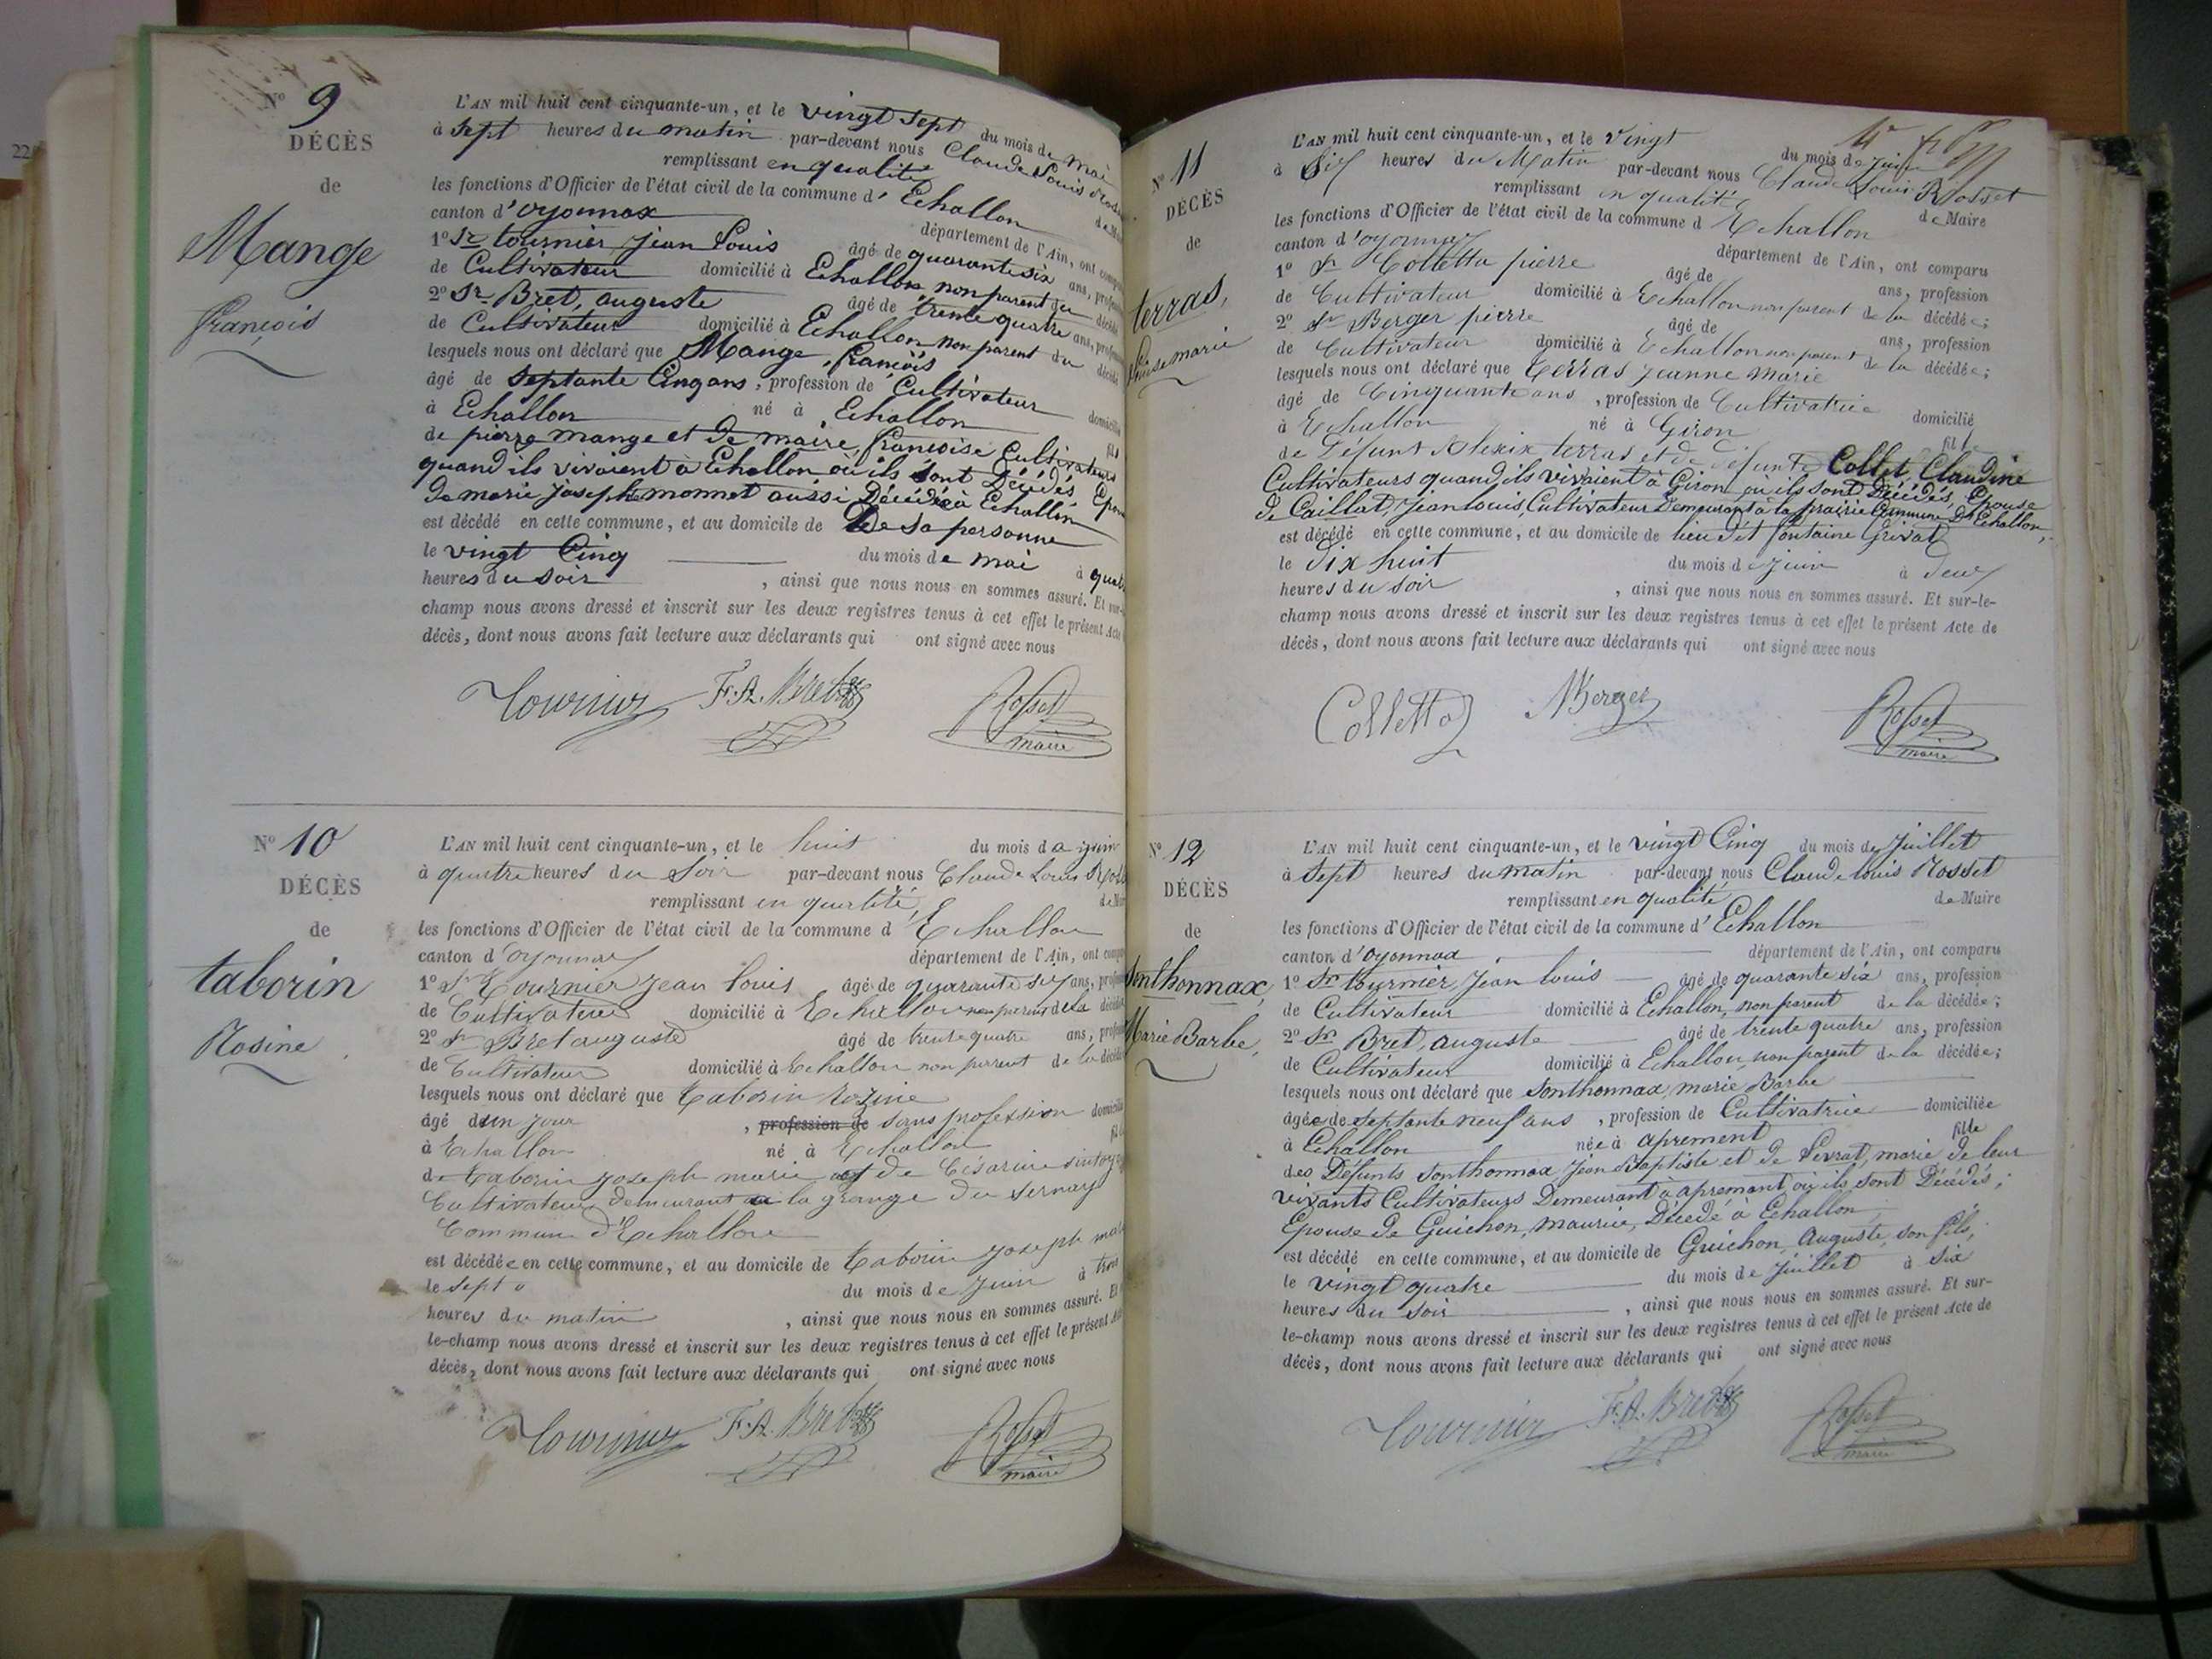 22
Nº 9
DÉCÈS
de
Mange
françois
L'AN mil huit cent cinquante-un, et le vingt sept du mois de mai
à sept heures du matin par-devant nous Claude Louis
remplissant en qualité
les fonctions d'Officier de l'état civil de la commune d' Echallon
canton d'oyonnax département de l'Ain, ont
1º Sr tournier jean Louis âgé de quarante six ans,
de Cultivateur domicilié à Echallon non parent du
2º Sr Bret, auguste âgé de trente quatre ans,
de Cultivateur domicilié à Echallon non parent du
lesquels nous ont déclaré que Mange, françois
âgé de septante Cinq ans, profession de Cultivateur
à Echallon né à Echallon
de pierre mange et de maire françoise Cultivateurs
quand ils vivaient à Echallon où ils sont Décédés
de marie josephte monnet aussi Décédée à Echallon
est décédé en cette commune, et au domicile de De sa personne
le vingt Cinq du mois de mai à
heures du soir , ainsi que nous nous en sommes assuré. Et sur-
champ nous avons dressé et inscrit sur les deux registres tenus à cet effet le présent Acte
décès, dont nous avons fait lecture aux déclarants qui ont signé avec nous
Tournier F. A. Bret Rosset
maire
Nº 10
DÉCÈS
de
taborin
Rosine
L'AN mil huit cent cinquante-un, et le huit du mois de juin
à quatre heures du Soir par-devant nous Claude Louis
remplissant en qualité,
les fonctions d'Officier de l'état civil de la commune d' Echallon
canton d'oyonnax département de l'Ain, ont
1º Sr Tournier jean Louis âgé de quarante six ans,
de Cultivateur domicilié à Echallon non parent de la
2º Sr Bret auguste âgé de trente quatre ans,
de Cultivateur domicilié à Echallon non parent de la
lesquels nous ont déclaré que Taborin Rozine
âgé d'un jour , profession de sans profession
à Echallon né à Echallon
de Taborin joseph marie et de Césarine
Cultivateurs demeurant à la grange du
Commune d'Echallon
est décédée en cette commune, et au domicile de Taborin joseph
le sept du mois de juin à trois
heures du matin , ainsi que nous nous en sommes assuré. Et
le-champ nous avons dressé et inscrit sur les deux registres tenus à cet effet le présent
décès, dont nous avons fait lecture aux déclarants qui ont signé avec nous
Tournier F. A. Bret Rosset
maire
Nº 11
DÉCÈS
de
terras,
marie
L'AN mil huit cent cinquante-un, et le Vingt du mois de juin
à Six heures du Matin par-devant nous Claude Louis Rosset
remplissant en qualité de Maire
les fonctions d'Officier de l'état civil de la commune d Echallon
canton d'oyonnax département de l'Ain, ont comparu
1º Sr Colletta pierre âgé de ans, profession
de Cultivateur domicilié à Echallon non parent de la décédée;
2º Sr Berger pierre âgé de ans, profession
de Cultivateur domicilié à Echallon non parent de la décédée;
lesquels nous ont déclaré que Terras jeanne marie
âgé de Cinquante ans , profession de Cultivatrice domicilié
à Echallon né à Giron fille
de Défunt Alexix terras et de défunte Collet Claudine
Cultivateurs quand ils vivaient à Giron où ils sont Décédés, Epouse
de Caillat, jean louis, Cultivateur Demeurant à la prairie Commune D'Echallon,
est décédé en cette commune, et au domicile de lieu dit fontaine
le Dix huit du mois de juin à deux
heures du soir , ainsi que nous nous en sommes assuré. Et sur-le-
champ nous avons dressé et inscrit sur les deux registres tenus à cet effet le présent Acte de
décès, dont nous avons fait lecture aux déclarants qui ont signé avec nous
Colletta Berger Rosset
maire
Nº 12
DÉCÈS
de
Sonthonnax,
Marie Barbe,
L'AN mil huit cent cinquante-un, et le vingt Cinq du mois de juillet
à sept heures du matin par-devant nous Claude louis Rosset
remplissant en qualité de Maire
les fonctions d'Officier de l'état civil de la commune d' Echallon
canton d'oyonnax département de l'Ain, ont comparu
1º Sr tournier, jean louis âgé de quarante six ans, profession
de Cultivateur domicilié à Echallon, non parent de la décédée;
2º Sr Bret, auguste âgé de trente quatre ans, profession
de Cultivateur domicilié à Echallon, non parent de la décédée;
lesquels nous ont déclaré que Sonthonnax, marie Barbe
âgée de septante neuf ans , profession de Cultivatrice domiciliée
à Echallon née à aprement fille
des Défunts Sonthonnax jean Baptiste et de Levrat, marie de leur
vivants Cultivateurs Demeurant à apremont, où ils sont Décédés;
Epouse de Guichon, maurice, Décédé à Echallon
est décédé en cette commune, et au domicile de Guichon, Auguste, son fils,
le vingt quatre du mois de juillet à six
heures du soir , ainsi que nous nous en sommes assuré. Et sur-
le-champ nous avons dressé et inscrit sur les deux registres tenus à cet effet le présent Acte de
décès, dont nous avons fait lecture aux déclarants qui ont signé avec nous
Tournier F. A. Bret Rosset
maire